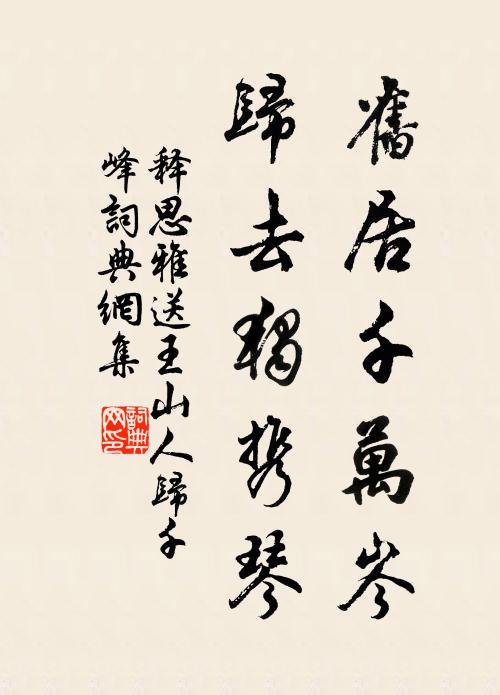 舊居千萬岑
歸去獨携琴
释思雅送王山人歸千
峰詞典網集
詞典
网印